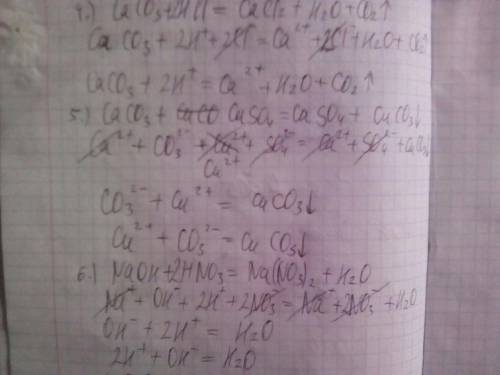 4.) CaCO3+2HCl = CaCl2 + H2O + CO2↑
CaCO3 + 2H⁺ + 2Cl⁻ = Ca²⁺ + 2Cl⁻ + H2O + CO2↑
CaCO3 + 2H⁺ = Ca²⁺ + H2O + CO2↑
5.) CaCO3 + CuSO4 = CaSO4 + CuCO3↓
Ca²⁺ + CO3²⁻ + Cu²⁺ + SO4²⁻ = Ca²⁺ + SO4²⁻ + CuCO3↓
Cu²⁺
CO3²⁻ + Cu²⁺ = CuCO3↓
Cu²⁺ + CO3²⁻ = CuCO3↓
6.) NaOH + 2HNO3 = Na(NO3)2 + H2O
Na⁻ + OH⁻ + 2H⁺ + 2NO3⁻ = Na⁻ + 2NO3⁻ + H2O
OH⁻ + 2H⁺ = H2O
2H⁺ + OH⁻ = H2O